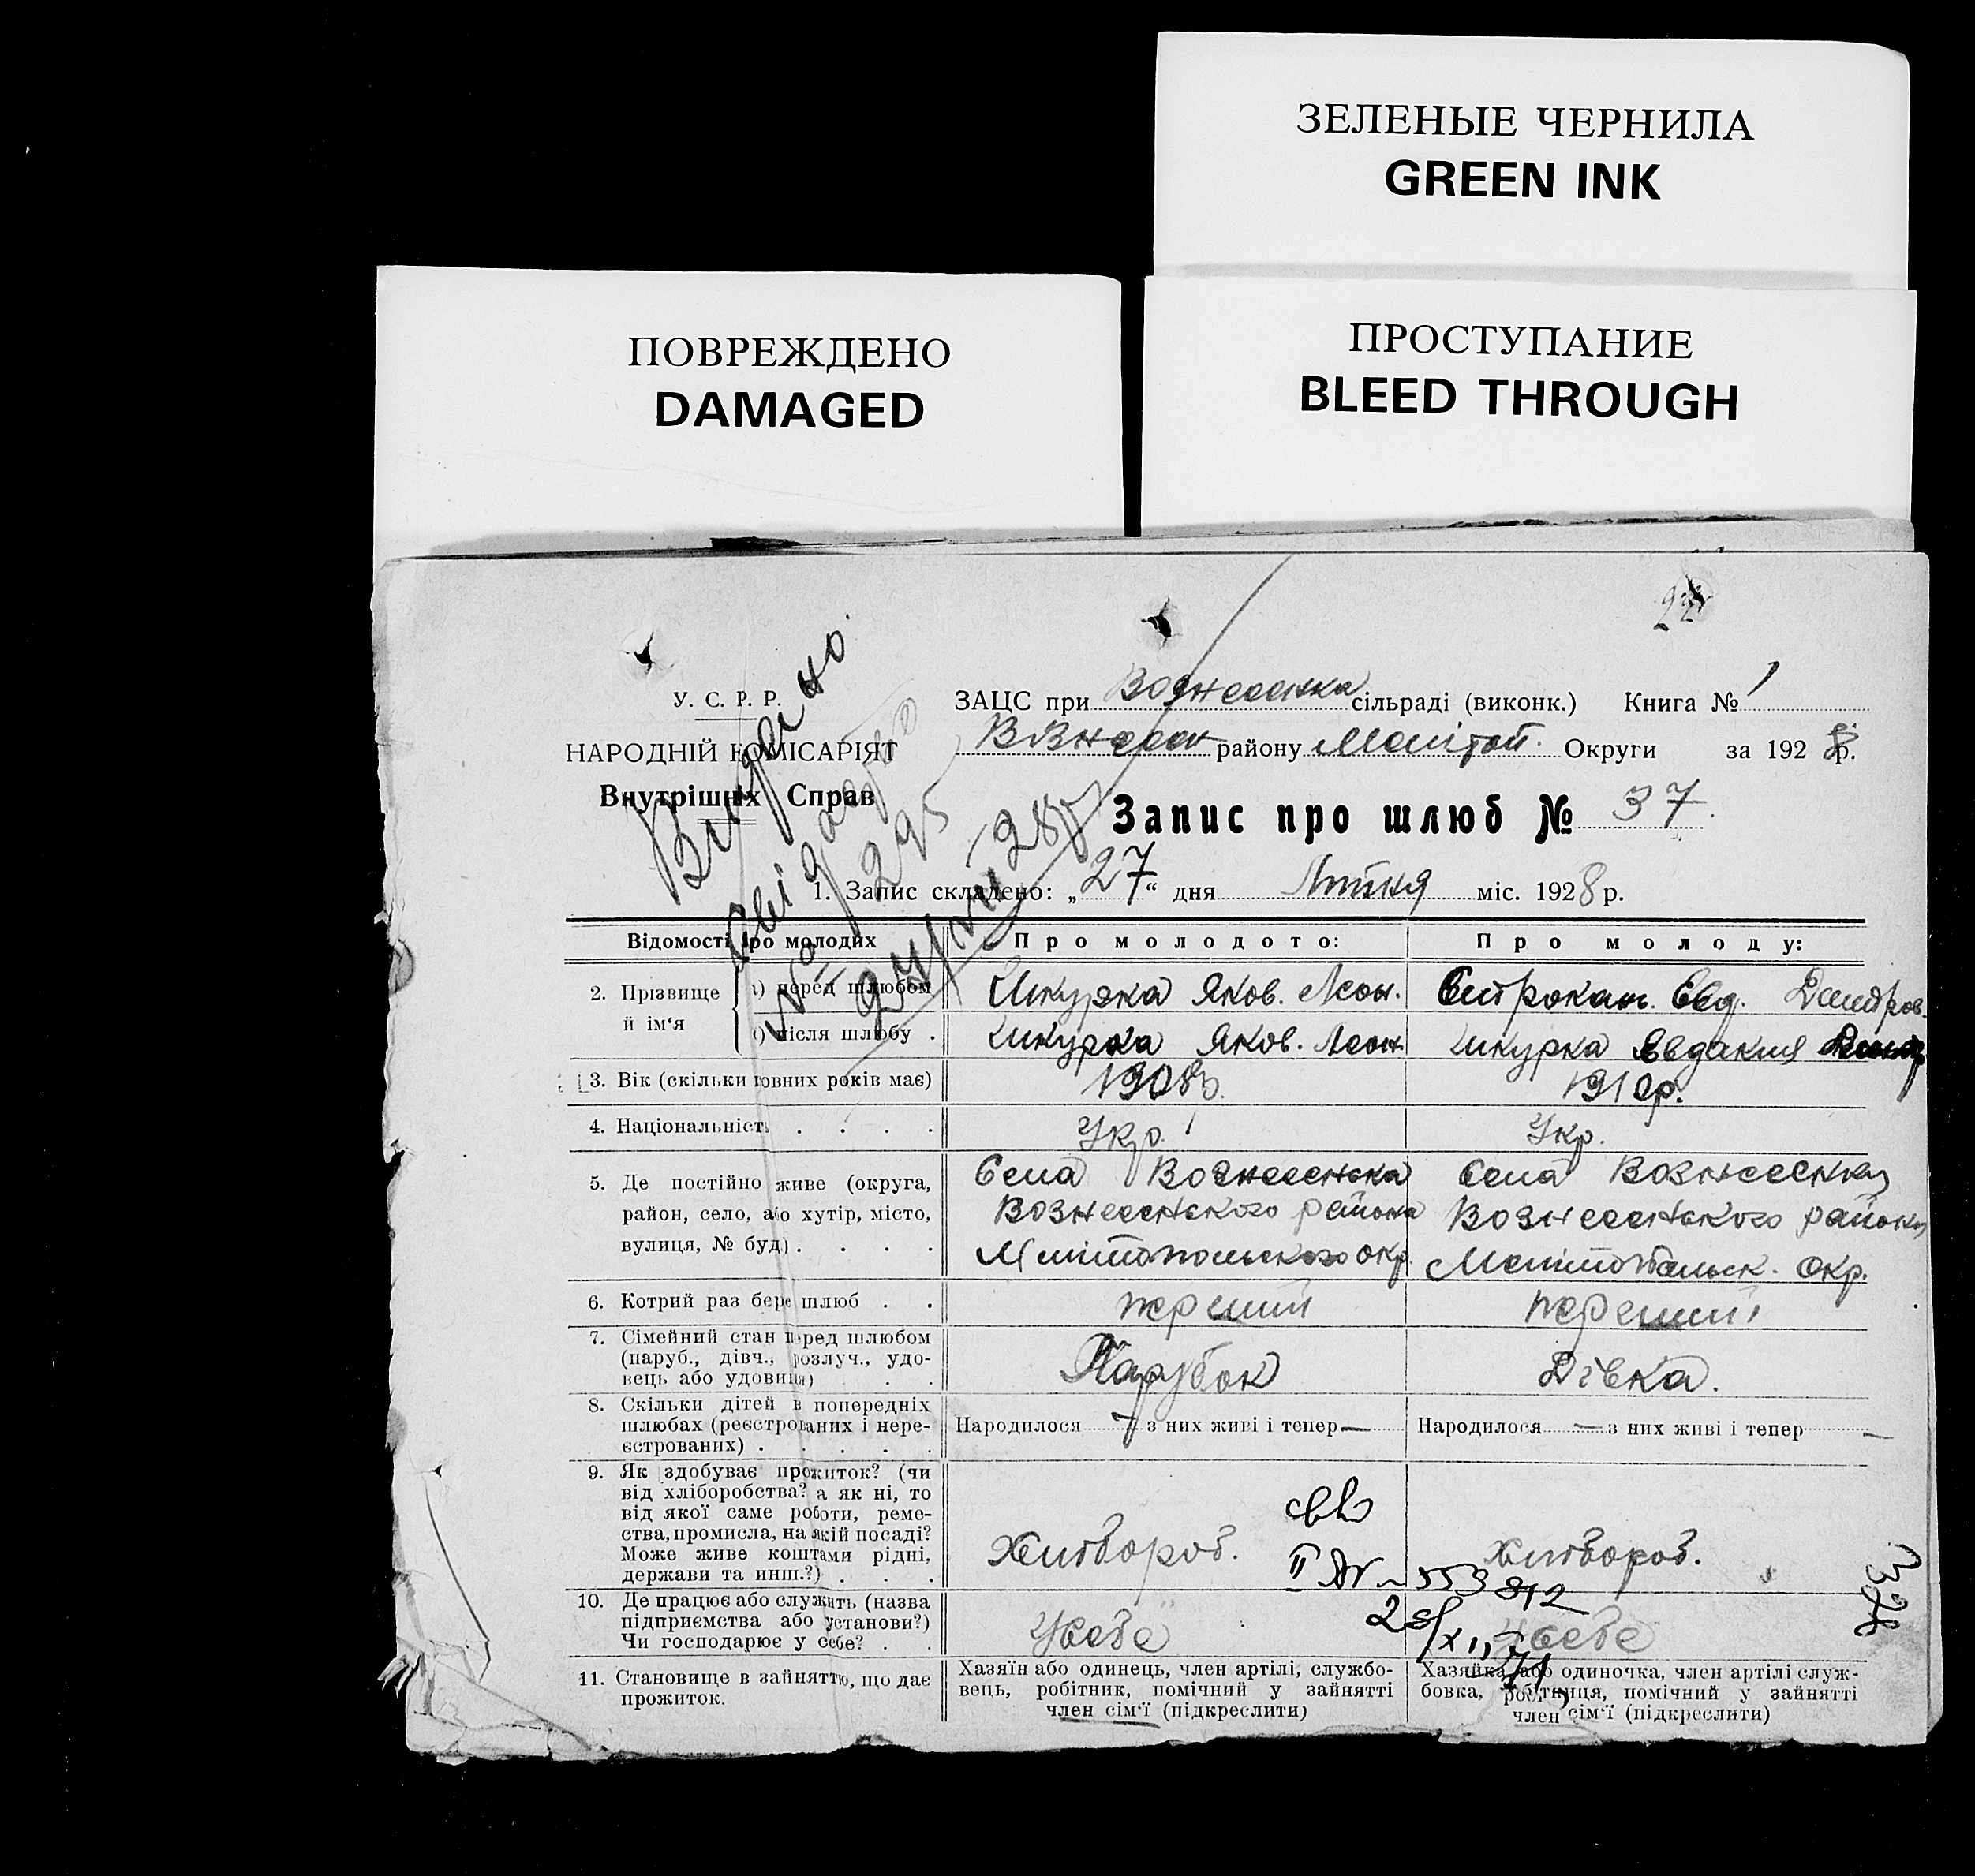 ЗЕЛЕНЫЕ ЧЕРНИЛА
GREEN INK
ПОВРЕЖДЕНО
DAMAGED
ПРОСТУПАНИЕ
BLEED THROUGH
Видано
№ 295
У. С. Р. Р.
НАРОДНІЙ КОМІСАРІЯТ
Внутрішніх Справ
ЗАЦС при Вознесенка сільраді (виконк.) Книга № 1
району Мелітоп. Округи за 1928 р.
Запис про шлюб № 37.
1. Запис складено: „27“ дня Липня міс. 1928 р.
Відомості про молодих Про молодого: Про молоду:
2. Прізвище й ім'я
а) перед шлюбом Шкурка Яков. Леон. Евд. Дмитров.
б) після шлюбу . Шкурка Яков. Леон. Шкурка Евдакия
3. Вік (скільки повних років має) 1908р. 1910р.
4. Національність . . . . Укр. Укр.
5. Де постійно живе (округа, Села Вознесенка Села Вознесенки
район, село, або хутір, місто, Вознесенского района Вознесенского району
вулиця, № буд.) . . . . Мелітопольского окр. Мелітопольск. Окр.
6. Котрий раз бере шлюб . . перший перший
7. Сімейний стан перед шлюбом
(паруб., дівч., розлуч., удо- Парубок Дівка.
вець або удовиця) . . .
8. Скільки дітей в попередніх
шлюбах (реєстрованих і нере- Народилося — з них живі і тепер — Народилося — з них живі і тепер —
єстрованих) . . . . .
9. Як здобуває прожиток? (чи
від хліборобства? а як ні, то
від якої саме роботи, реме-
ства, промисла, на якій посаді?
Може живе коштами рідні, Хлібороб. Хлібороб.
держави та инш.?) . . .
10. Де працює або служить (назва
підприємства або установи?) У себе У себе
Чи господарює у себе? . .
II 553812
328
11. Становище в зайняттю, що дає
прожиток.
Хазяїн або одинець, член артілі, службо-
вець, робітник, помічний у зайнятті
член сім'ї (підкреслити)
Хазяйка або одиночка, член артілі служ-
бовка, робітниця, помічний у зайнятті
член сім'ї (підкреслити)